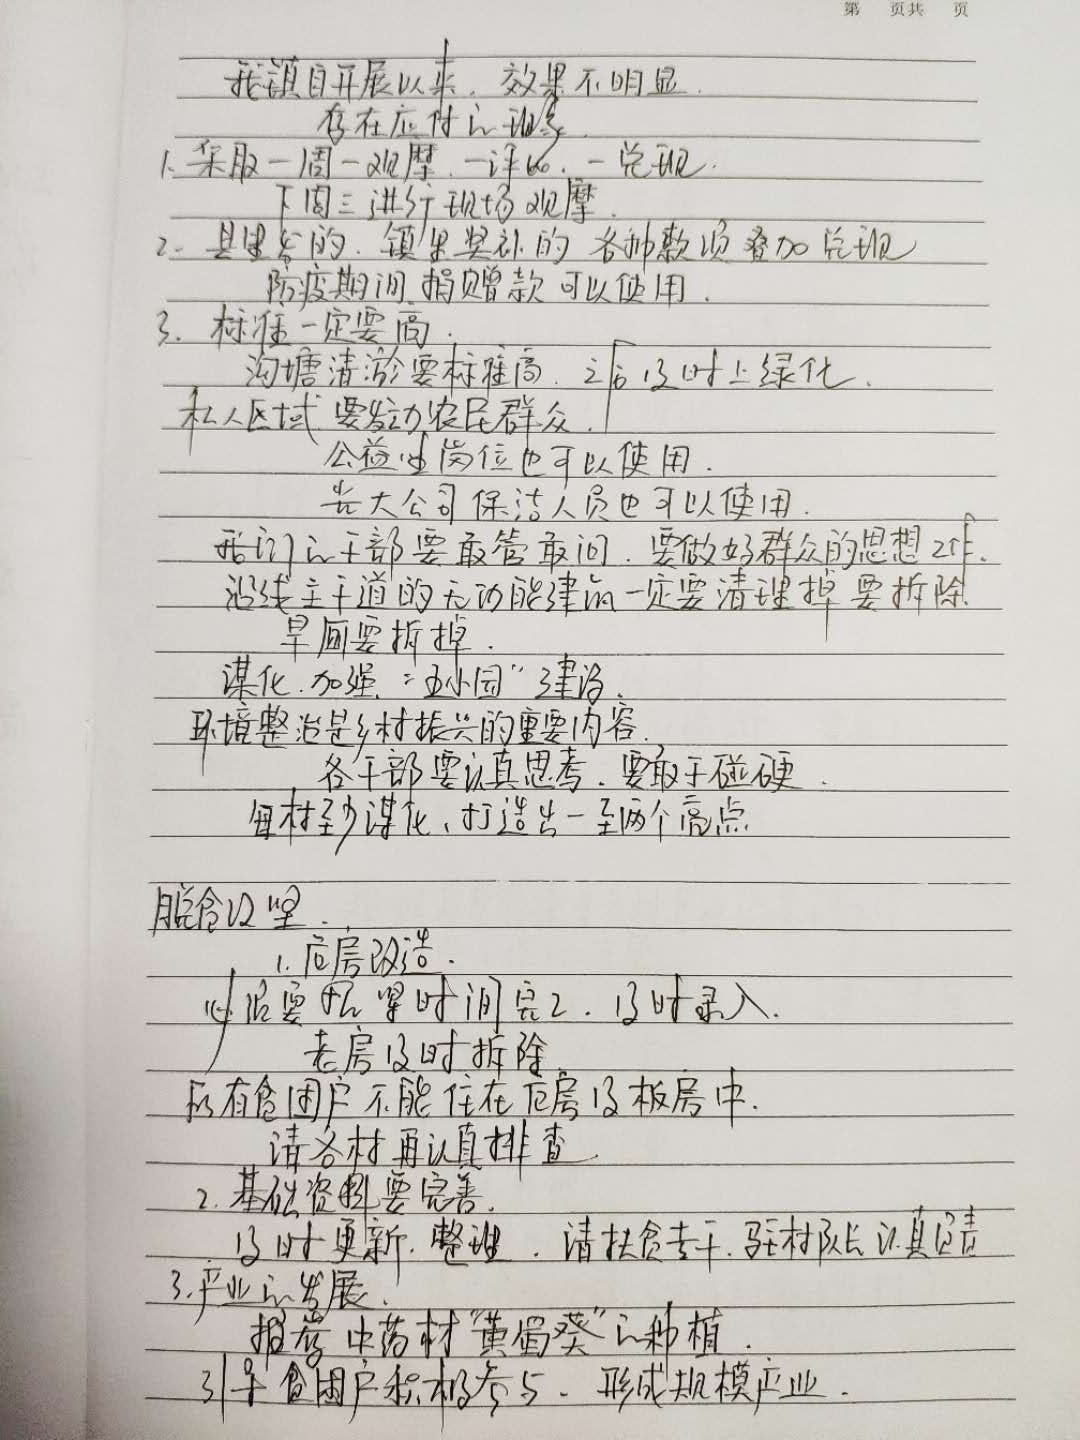 第 页共 页
我镇自开展以来,效果不明显.
存在应付的现象.
1. 采取一周一观摩、一评比、一兑现.
下周三进行现场观摩.
2. 县里发的、镇里奖补的 各种款项叠加兑现
防疫期间捐赠款可以使用.
3. 标准一定要高.
沟塘清淤要标准高,之后及时上绿化.
私人区域 要发动农民群众.
公益性岗位也可以使用.
光大公司保洁人员也可以使用.
我们的干部要敢管敢问.要做好群众的思想工作.
沿线主干道的无功能建筑一定要清理掉 要拆除.
旱厕要拆掉.
谋化.加强"五小园"建设.
环境整治是乡村振兴的重要内容.
各干部要认真思考.要敢于碰硬.
每村至少谋化、打造出一至两个亮点
脱贫攻坚.
1. 危房改造.
必须要抓紧时间完工.及时录入.
老房及时拆除
所有贫困户不能住在危房及板房中.
请各村再认真排查.
2. 基础资料要完善.
及时更新.整理.请扶贫专干.驻村队长认真负责
3. 产业的发展.
推荐中药材"黄蜀葵"的种植.
引导贫困户积极参与.形成规模产业.